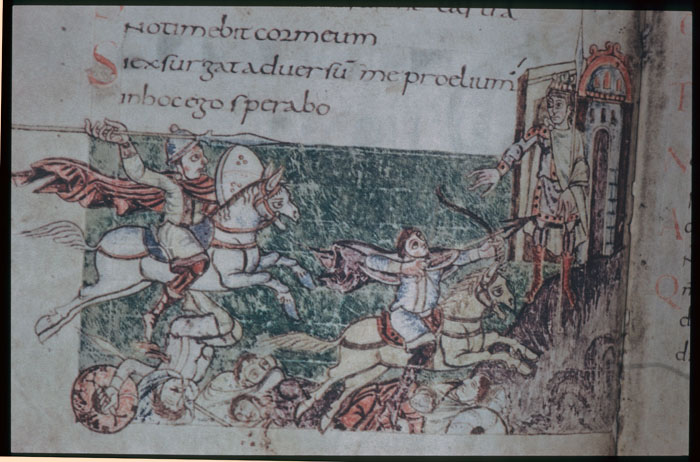 me castra
Notimebit cormeum
Siexsurgat aduersū me proelium
inhoc ego sperabo